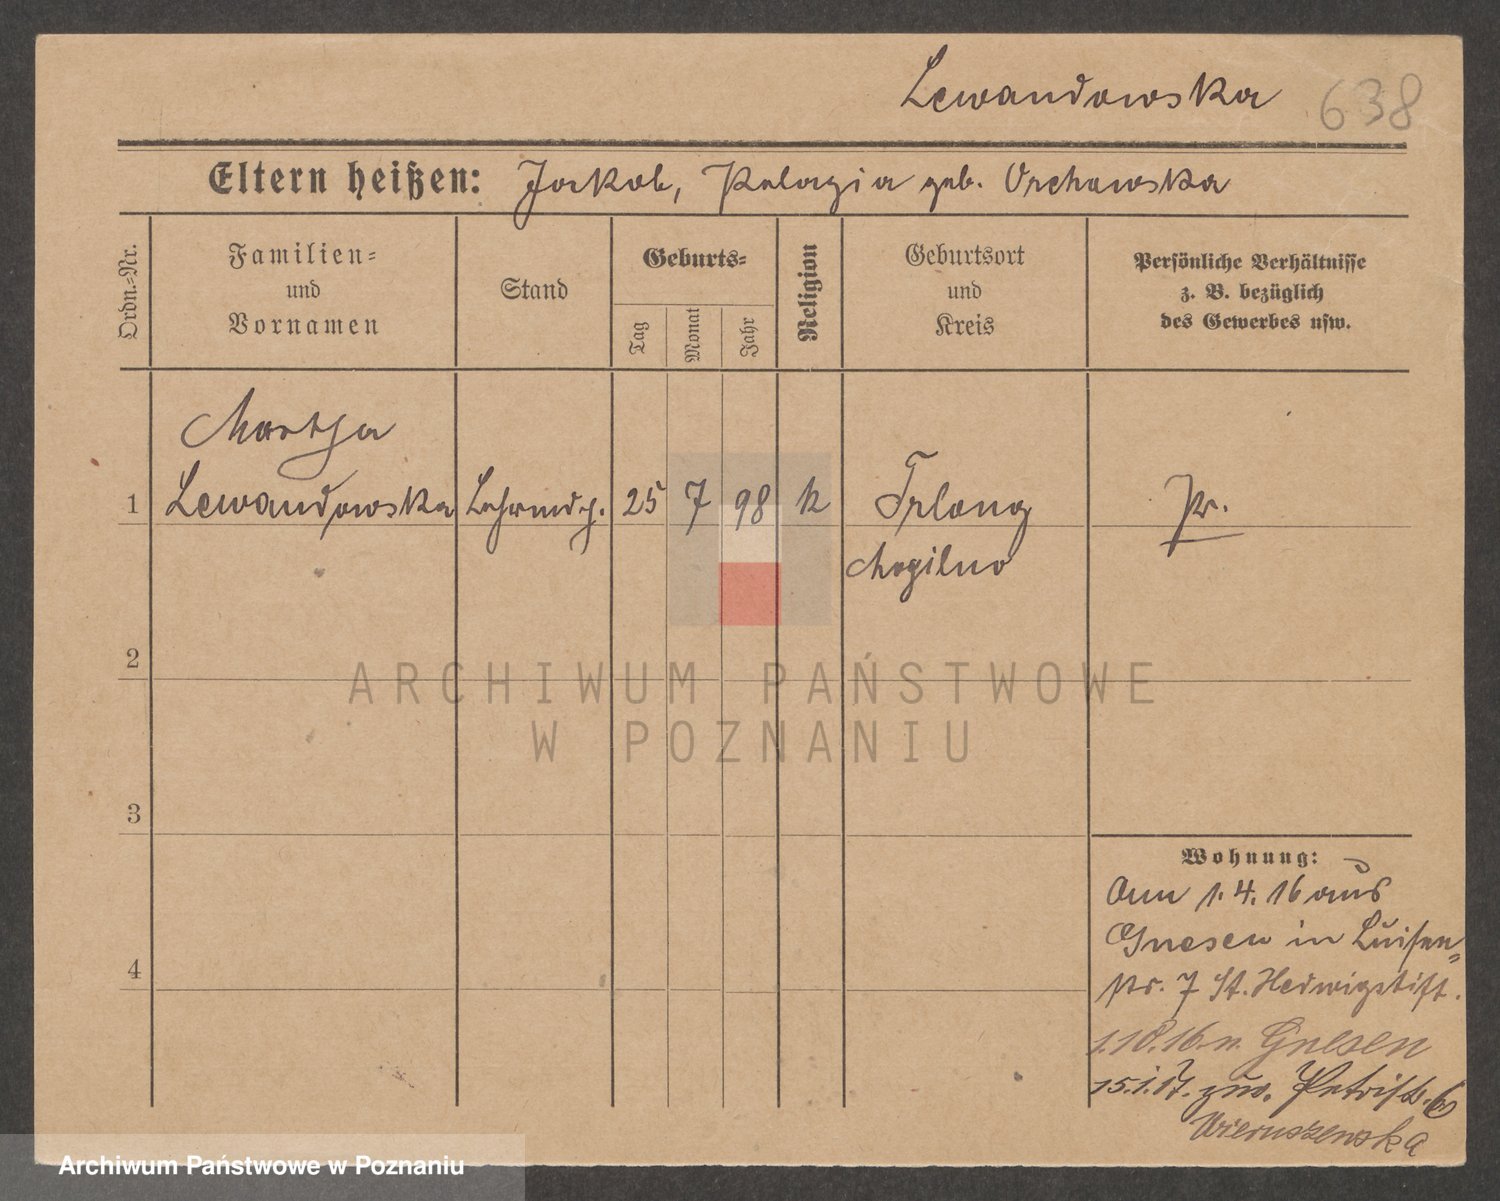 Lewandowska 638
Eltern heißen: Jakob, Pelagia geb. Orchowska
Ordn.-Nr.
Familien-
und
Vornamen
Stand
Geburts-
Tag
Monat
Jahr
Religion
Geburtsort
und
Kreis
Persönliche Verhältnisse
z. B. bezüglich
des Gewerbes usw.
Martha
1 Lewandowska 25 7 98 k Trlong Pr.
Mogilno
2
3
4
Wohnung:
Am 1. 4. 16 aus
Gnesen in Luisen-
str. 7 St. Hedwigstift.
1.10.16 n. Gnesen
15.1.17. zuw. Petristr. 6
Wieruszewska
ARCHIWUM PAŃSTWOWE
W POZNANIU
Archiwum Państwowe w Poznaniu